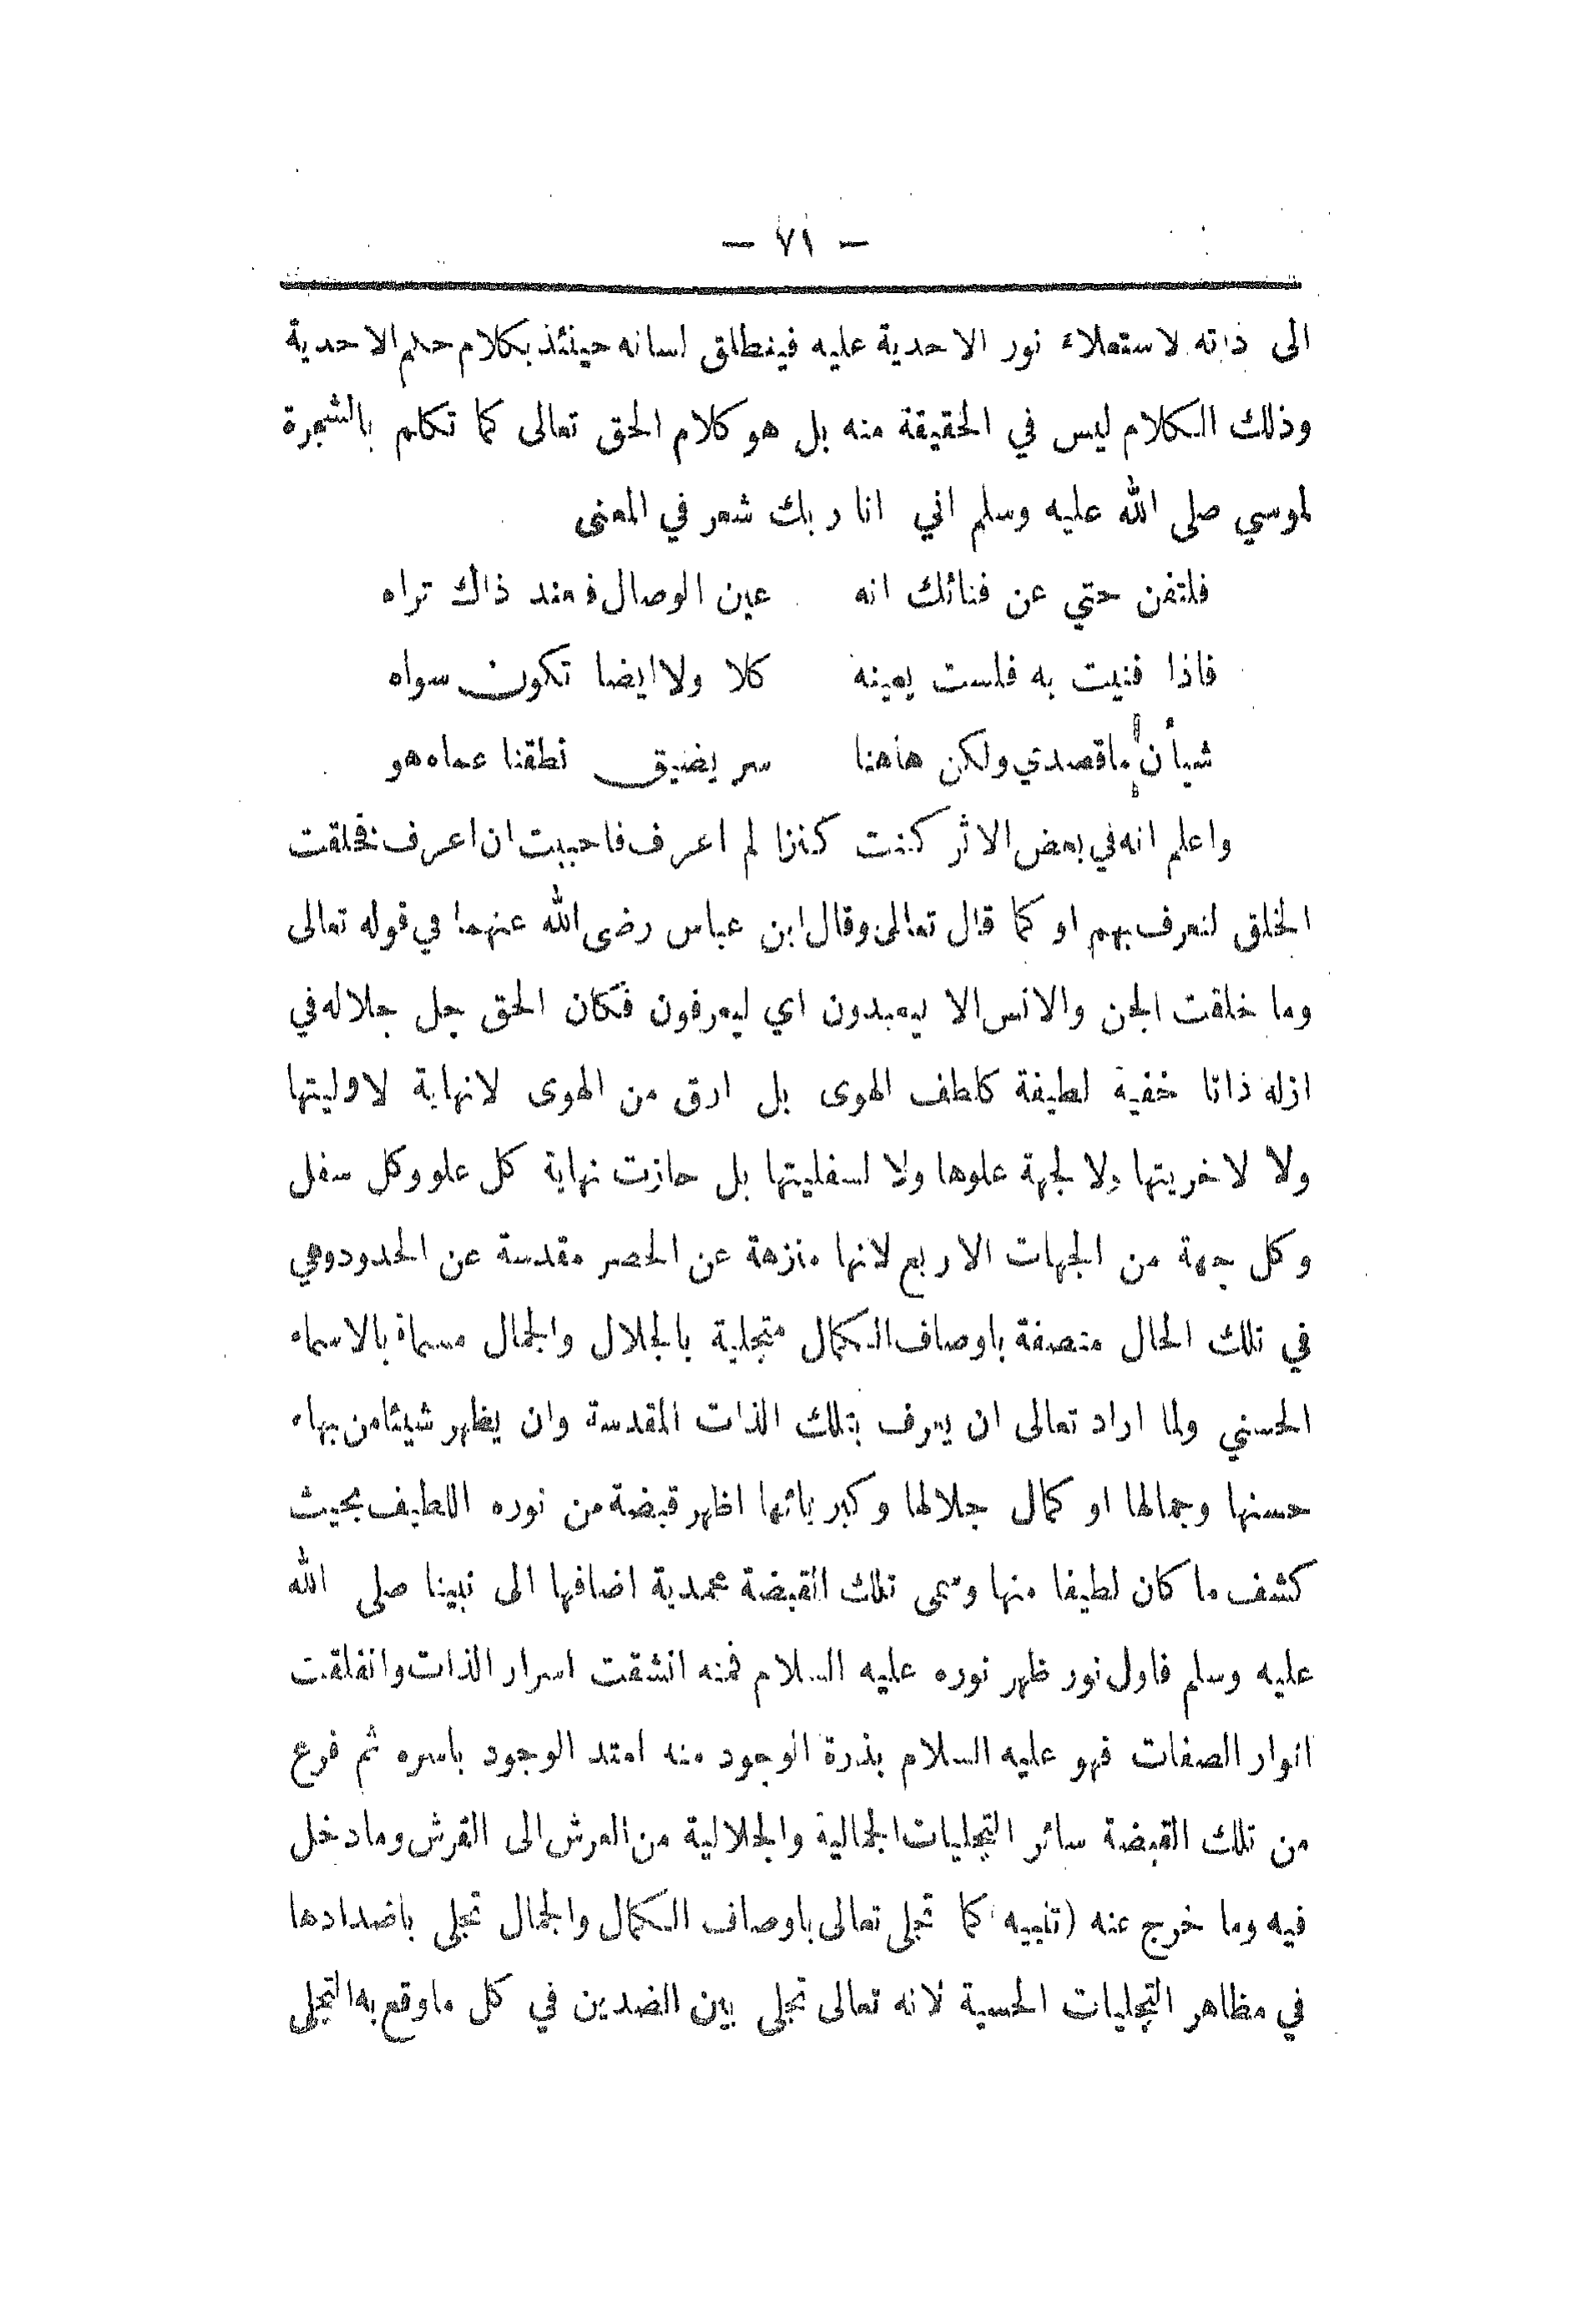 — ٧١ —
الى ذاته لاستعلاء نور الاحدية عليه فينطلق لسانه حينئذ بكلام حكم الاحدية
وذلك الكلام ليس في الحقيقة منه بل هو كلام الحق تعالى كما تكلم بالشجرة
لموسي صلى الله عليه وسلم اني انا ربك شعر في المعنى
فلتفن حتي عن فنائك انه عين الوصال فعند ذاك تراه
فاذا فنيت به فلست بعينه كلا ولا ايضا تكون سواه
شيأن ماقصدي ولكن هاهنا سر يضيق نطقنا عماه هو
واعلم انه في بعض الاثر كنت كنزا لم اعرف فاحببت ان اعرف فخلقت
الخلق لنعرف بهم او كما قال تعالى وقال ابن عباس رضى الله عنهما في قوله تعالى
وما خلقت الجن والانس الا ليعبدون اي ليعرفون فكان الحق جل جلاله في
ازله ذاتا خفية لطيفة كلطف الهوى بل ارق من الهوى لانهاية لاوليتها
ولا لاخريتها ولا لجهة علوها ولا لسفليتها بل حازت نهاية كل علو وكل سفل
وكل جهة من الجهات الاربع لانها منزهة عن الحصر مقدسة عن الحدود وهي
في تلك الحال متصفة باوصاف الكمال متجلية بالجلال والجمال مسماة بالاسماء
الحسني ولما اراد تعالى ان يعرف بتلك الذات المقدسة وان يظهر شيئا من بهاء
حسنها وجمالها او كمال جلالها وكبريائها اظهر قبضة من نوره اللطيف بحيث
كشف ما كان لطيفا منها وسمى تلك القبضة محمدية اضافها الى نبينا صلى الله
عليه وسلم فاول نور ظهر نوره عليه السلام فمنه انشقت اسرار الذات وانفلقت
انوار الصفات فهو عليه السلام بذرة الوجود منه امتد الوجود باسره ثم فرع
من تلك القبضة سائر التجليات الجمالية والجلالية من العرش الى الفرش وما دخل
فيه وما خرج عنه (تنبيه كما تجلى تعالى باوصاف الكمال والجمال تجلى باضدادها
في مظاهر التجليات الحسية لانه تعالى تجلى بين الضدين في كل ماوقع به التجلى